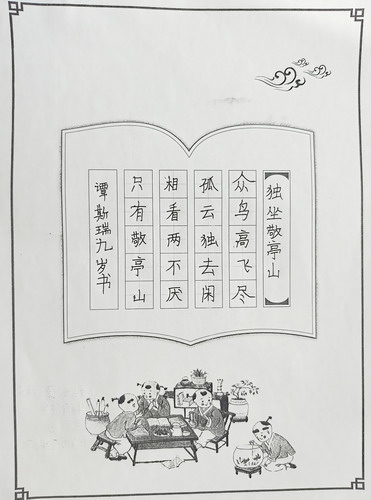 独坐敬亭山
众鸟高飞尽
孤云独去闲
相看两不厌
只有敬亭山
谭斯瑞九岁书